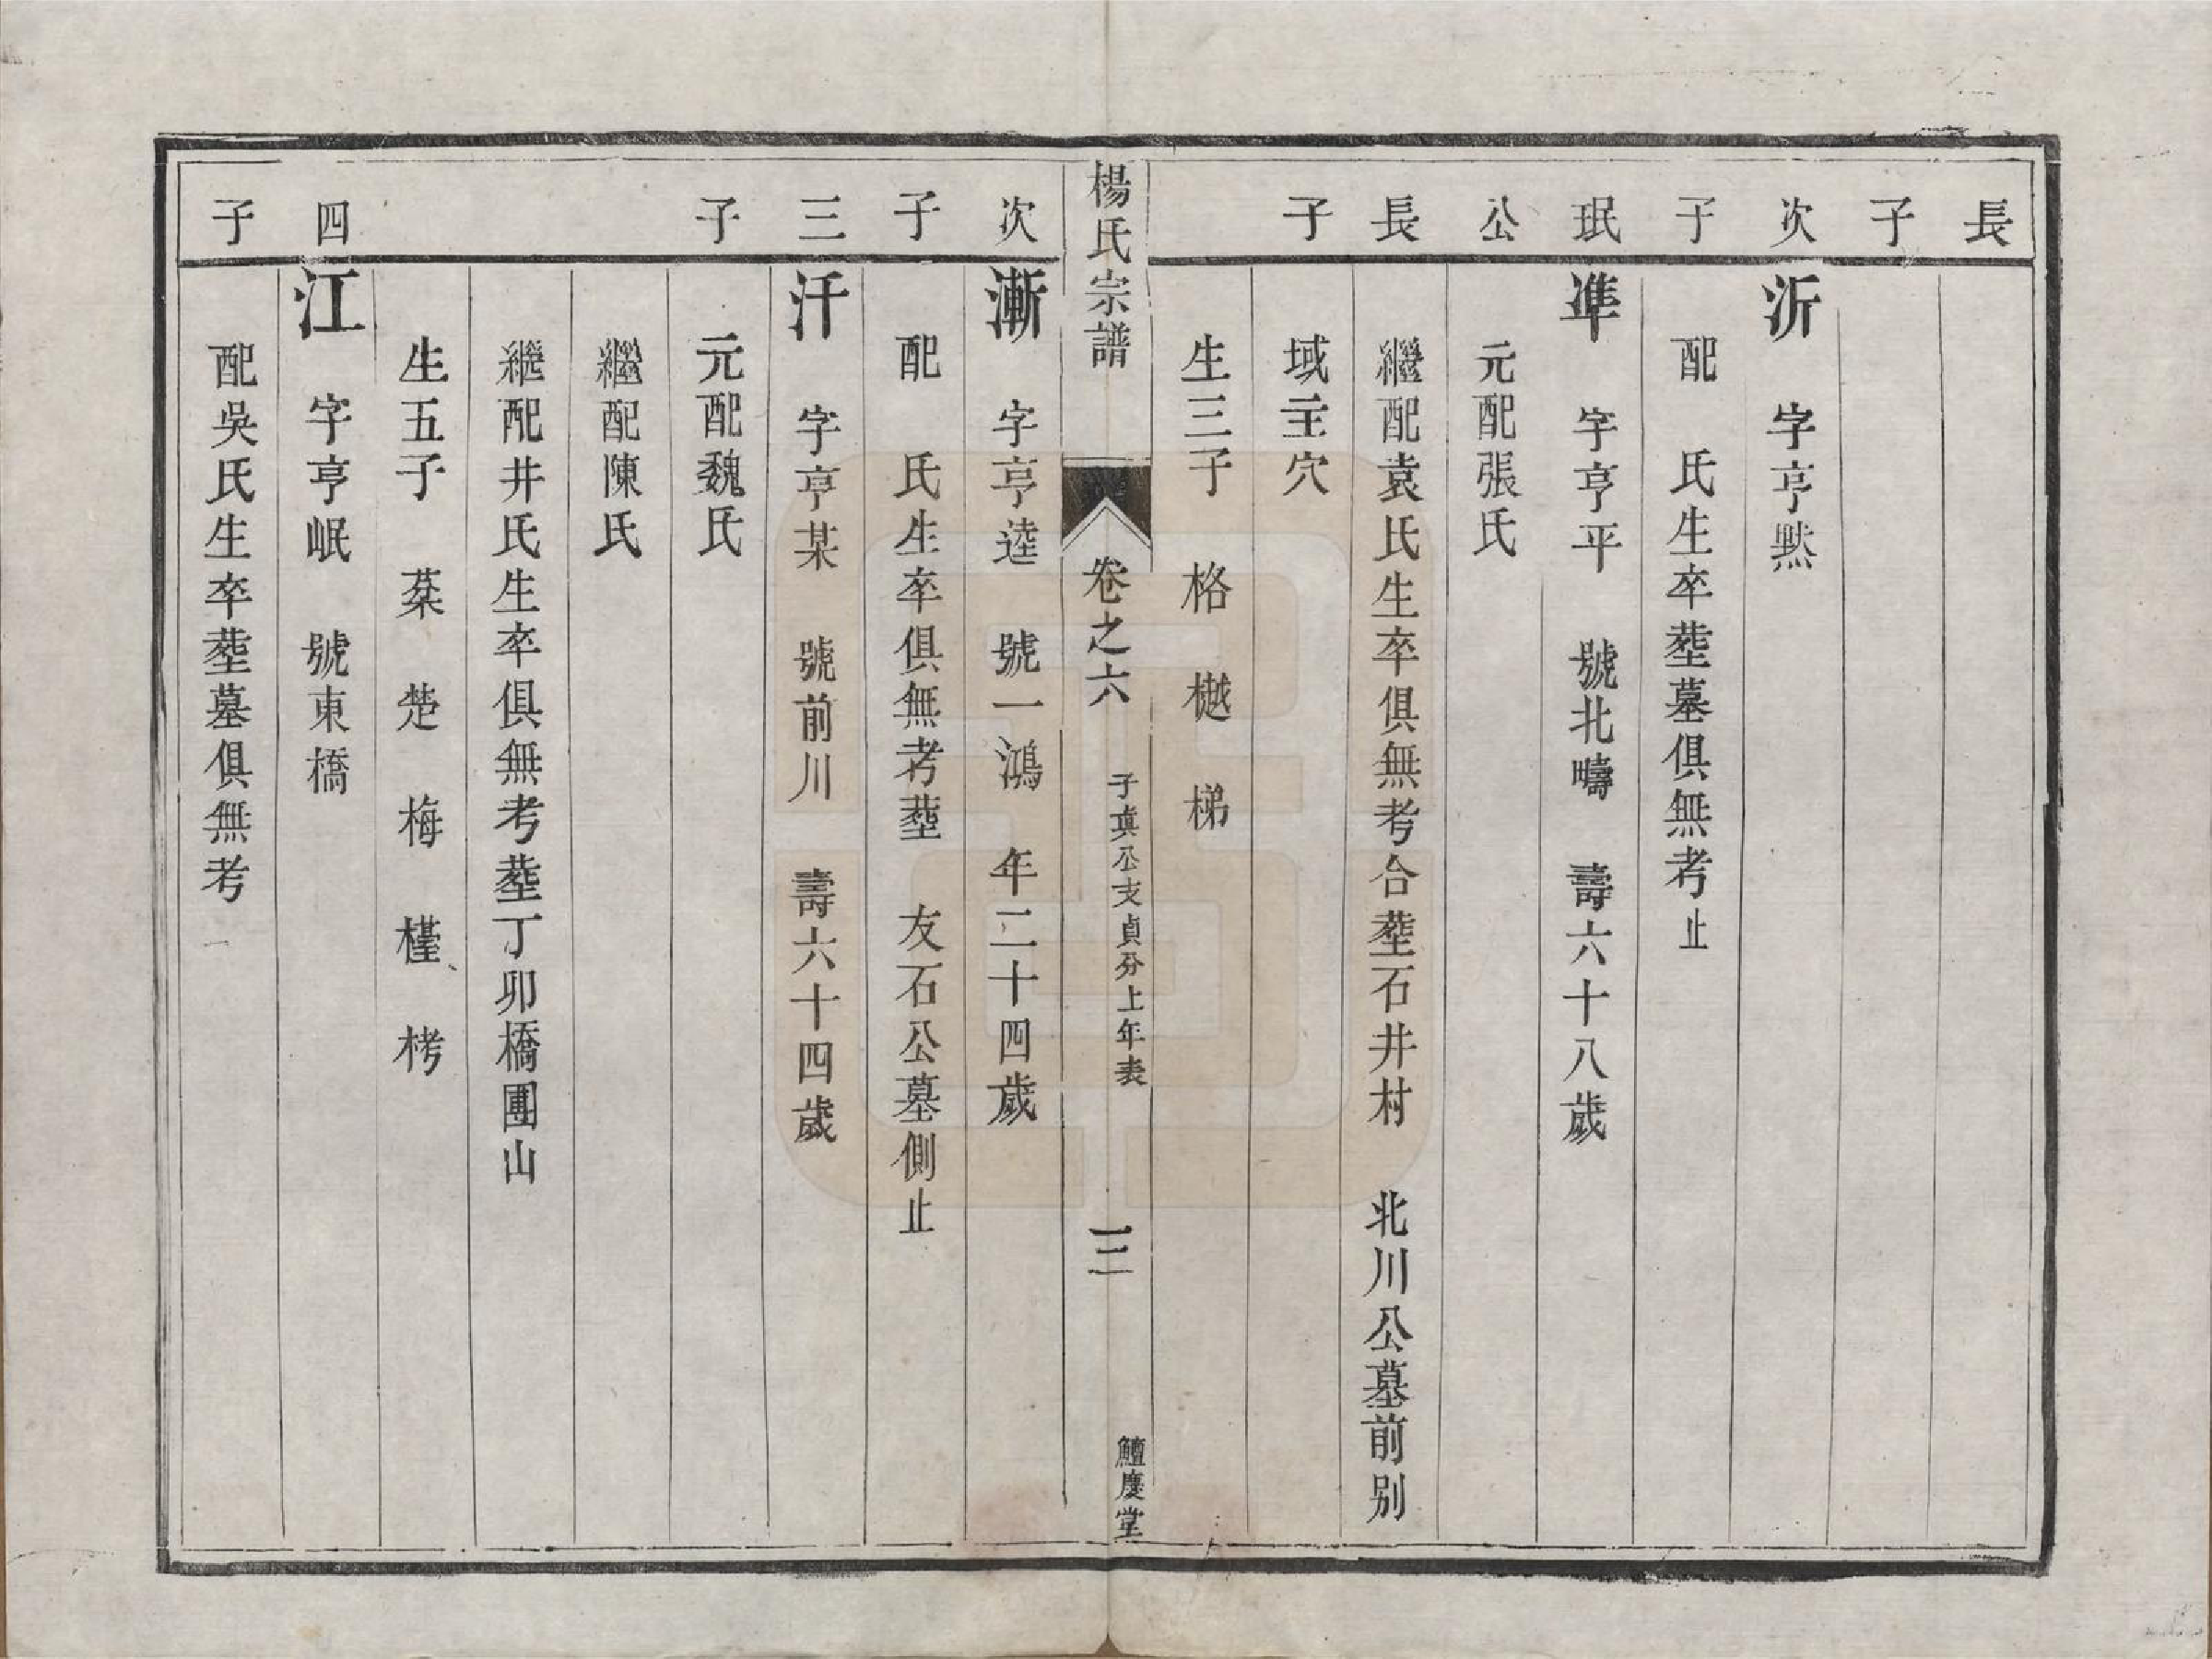 長子
次子
沂　字亨㸃
配　氏生卒塟墓俱無考止
珉公長子
準　字亨平　號北疇　壽六十八歲
元配張氏
繼配袁氏生卒俱無考合塟石井村　北川公墓前別
域主穴
生三子　格　樾　梯
楊氏宗譜　卷之六　子真公支貞分上年表　三　鱣慶堂
次子
漸　字亨逵　號一鴻　年二十四歲
配　氏生卒俱無考塟　友石公墓側止
三子
汗　字亨某　號前川　壽六十四歲
元配魏氏
繼配陳氏
繼配井氏生卒俱無考塟丁卯橋團山
生五子　棻　楚　梅　槿　栲
四子
江　字亨岷　號東橋
配吳氏生卒塟墓俱無考